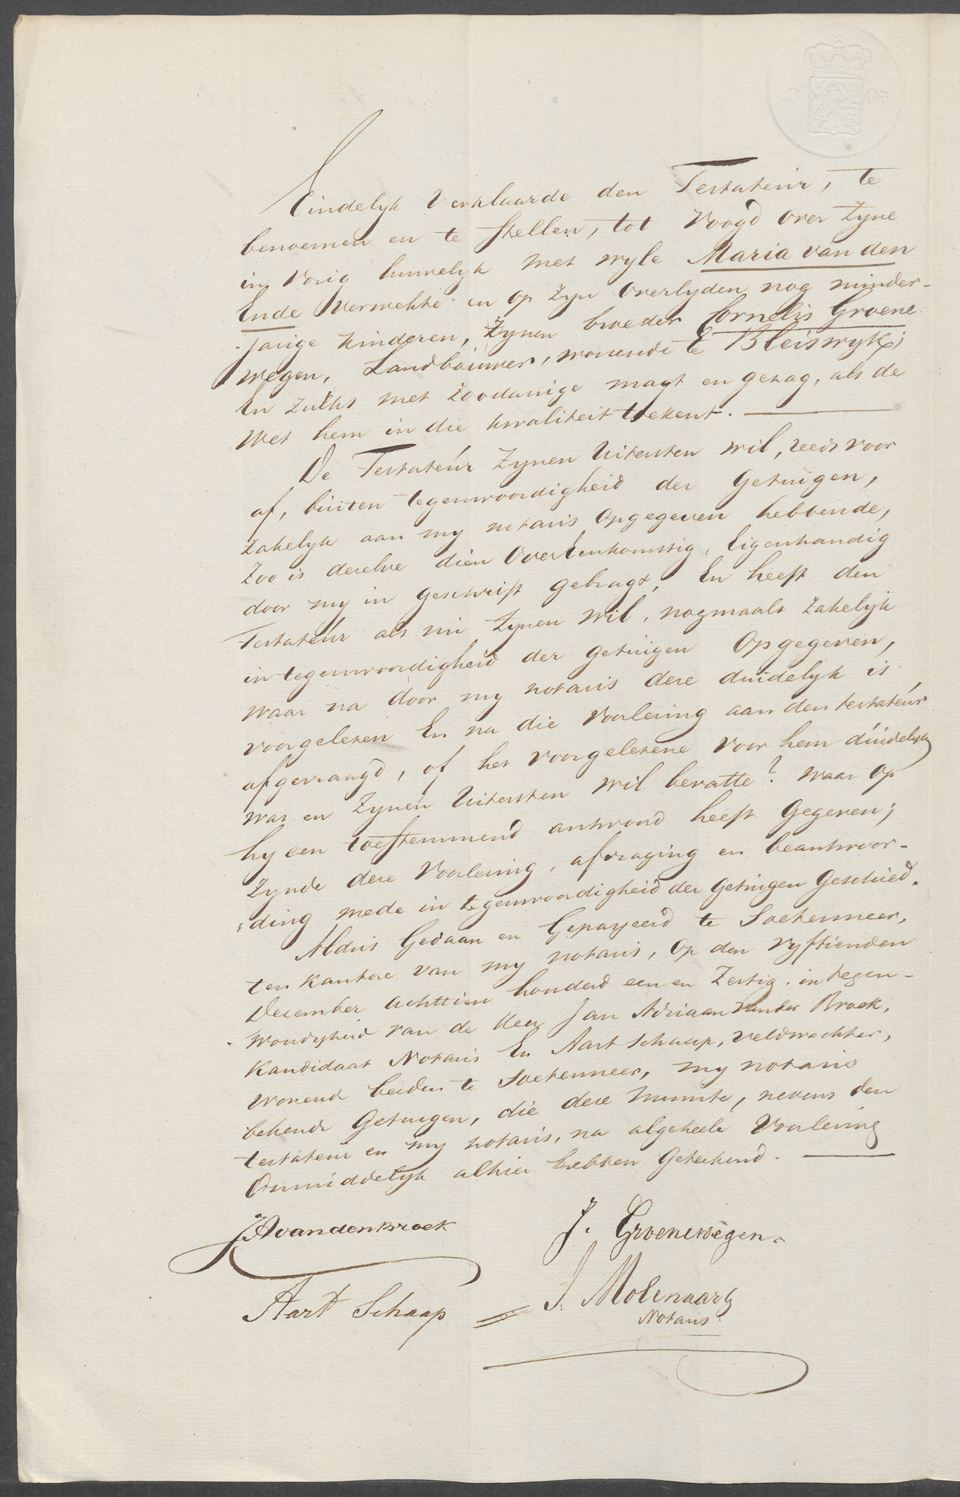 Eindelyk verklaarde den Testateur, te
benoemen en te stellen, tot Voogd over Zyne
in vorig huwelyk met wyle Maria van den
Ende verwekte en op Zyn Overlyden nog minder-
jarige kinderen, Zynen broeder Cornelis Groene
wegen, Landbouwer, wonende te Bleiswyk;
En zulks met zoodanige magt en gezag, als de
Wet hem in die kwaliteit toekent.
De Testateur Zynen Uitersten wil, reeds voor
af, buiten tegenwoordigheid der Getuigen,
Zakelyk aan my notaris Opgegeven hebbende,
Zoo is dezelve dien Overeenkomstig, Eigenhandig
door my in geschrift gebragt, En heeft den
Testateur als nu Zynen wil, nogmaals Zakelyk
in tegenwoordigheid der getuigen Opgegeven,
waar na door my notaris deze duidelyk is
voorgelezen En na die Voorlezing aan den testateur
afgevraagd, of het voorgelezene voor hem duidelyk
was en Zynen Uitersten wil bevatte? waar Op
hy een toestemmend antwoord heeft Gegeven;
Zynde deze Voorlezing, afvraging en beantwoor-
ding mede in tegenwoordigheid der Getuigen Geschied.
Aldus Gedaan en Gepasseerd te Soetermeer,
ten kantore van my notaris, Op den Vyftienden
December achttien honderd een en Zestig, in tegen-
woordigheid van de Heer Jan Adriaan van den Broek,
Kandidaat Notaris En Aart Schaap, veldwachter,
Wonend beiden te Soetermeer, my notaris
bekende Getuigen, die deze minute, nevens den
testateur en my notaris, na algeheele Voorlezing
Onmiddelyk alhier hebben Geteekend.
JA van den Broek J. Groenewegen
Aart Schaap J. Molenaar
Notaris